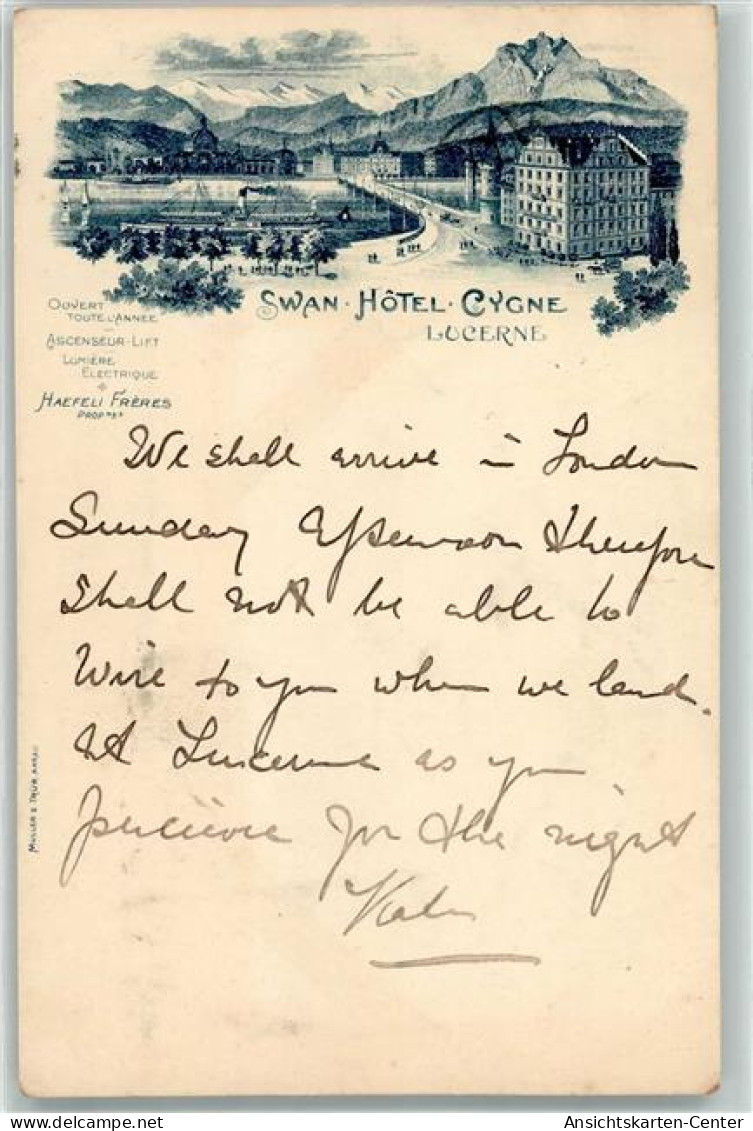 SWAN · HÔTEL · CYGNE
LUCERNE
OUVERT
TOUTE L'ANNÉE
ASCENSEUR-LIFT
LUMIÈRE
ELECTRIQUE
HAEFELI FRÈRES
We shall arrive in London
Sunday afternoon therefore
shall not be able to
Wire to you when we land.
At Lucerne as you
percieve for the night
MÜLLER & TRÜB AARAU
Ansichtskarten-Center